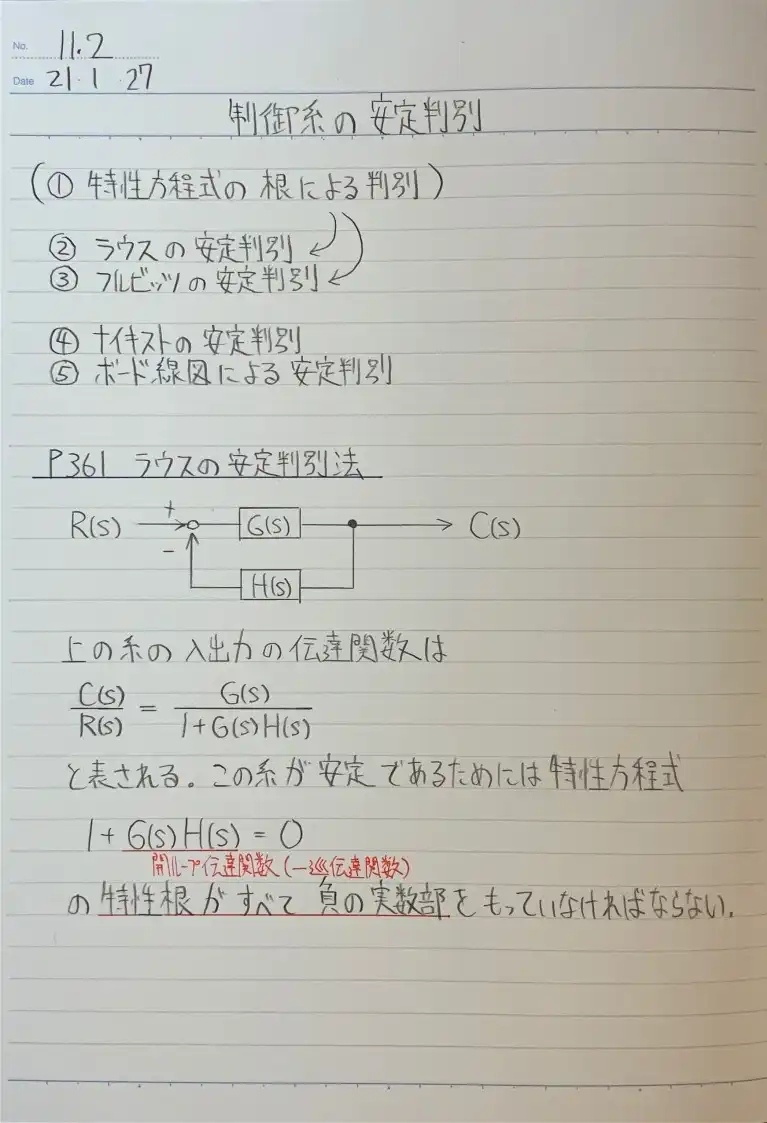 No. 11.2
Date 21・1・27
制御系の安定判別
(① 特性方程式の根による判別)
② ラウスの安定判別
③ フルビッツの安定判別
④ ナイキストの安定判別
⑤ ボード線図による安定判別
P361 ラウスの安定判別法
R(s) + − G(s) C(s)
H(s)
上の系の入出力の伝達関数は
C(s)/R(s) = G(s)/1+G(s)H(s)
と表される。この系が安定であるためには特性方程式
1+G(s)H(s)=0
開ループ伝達関数(一巡伝達関数)
の特性根がすべて負の実数部をもっていなければならない.